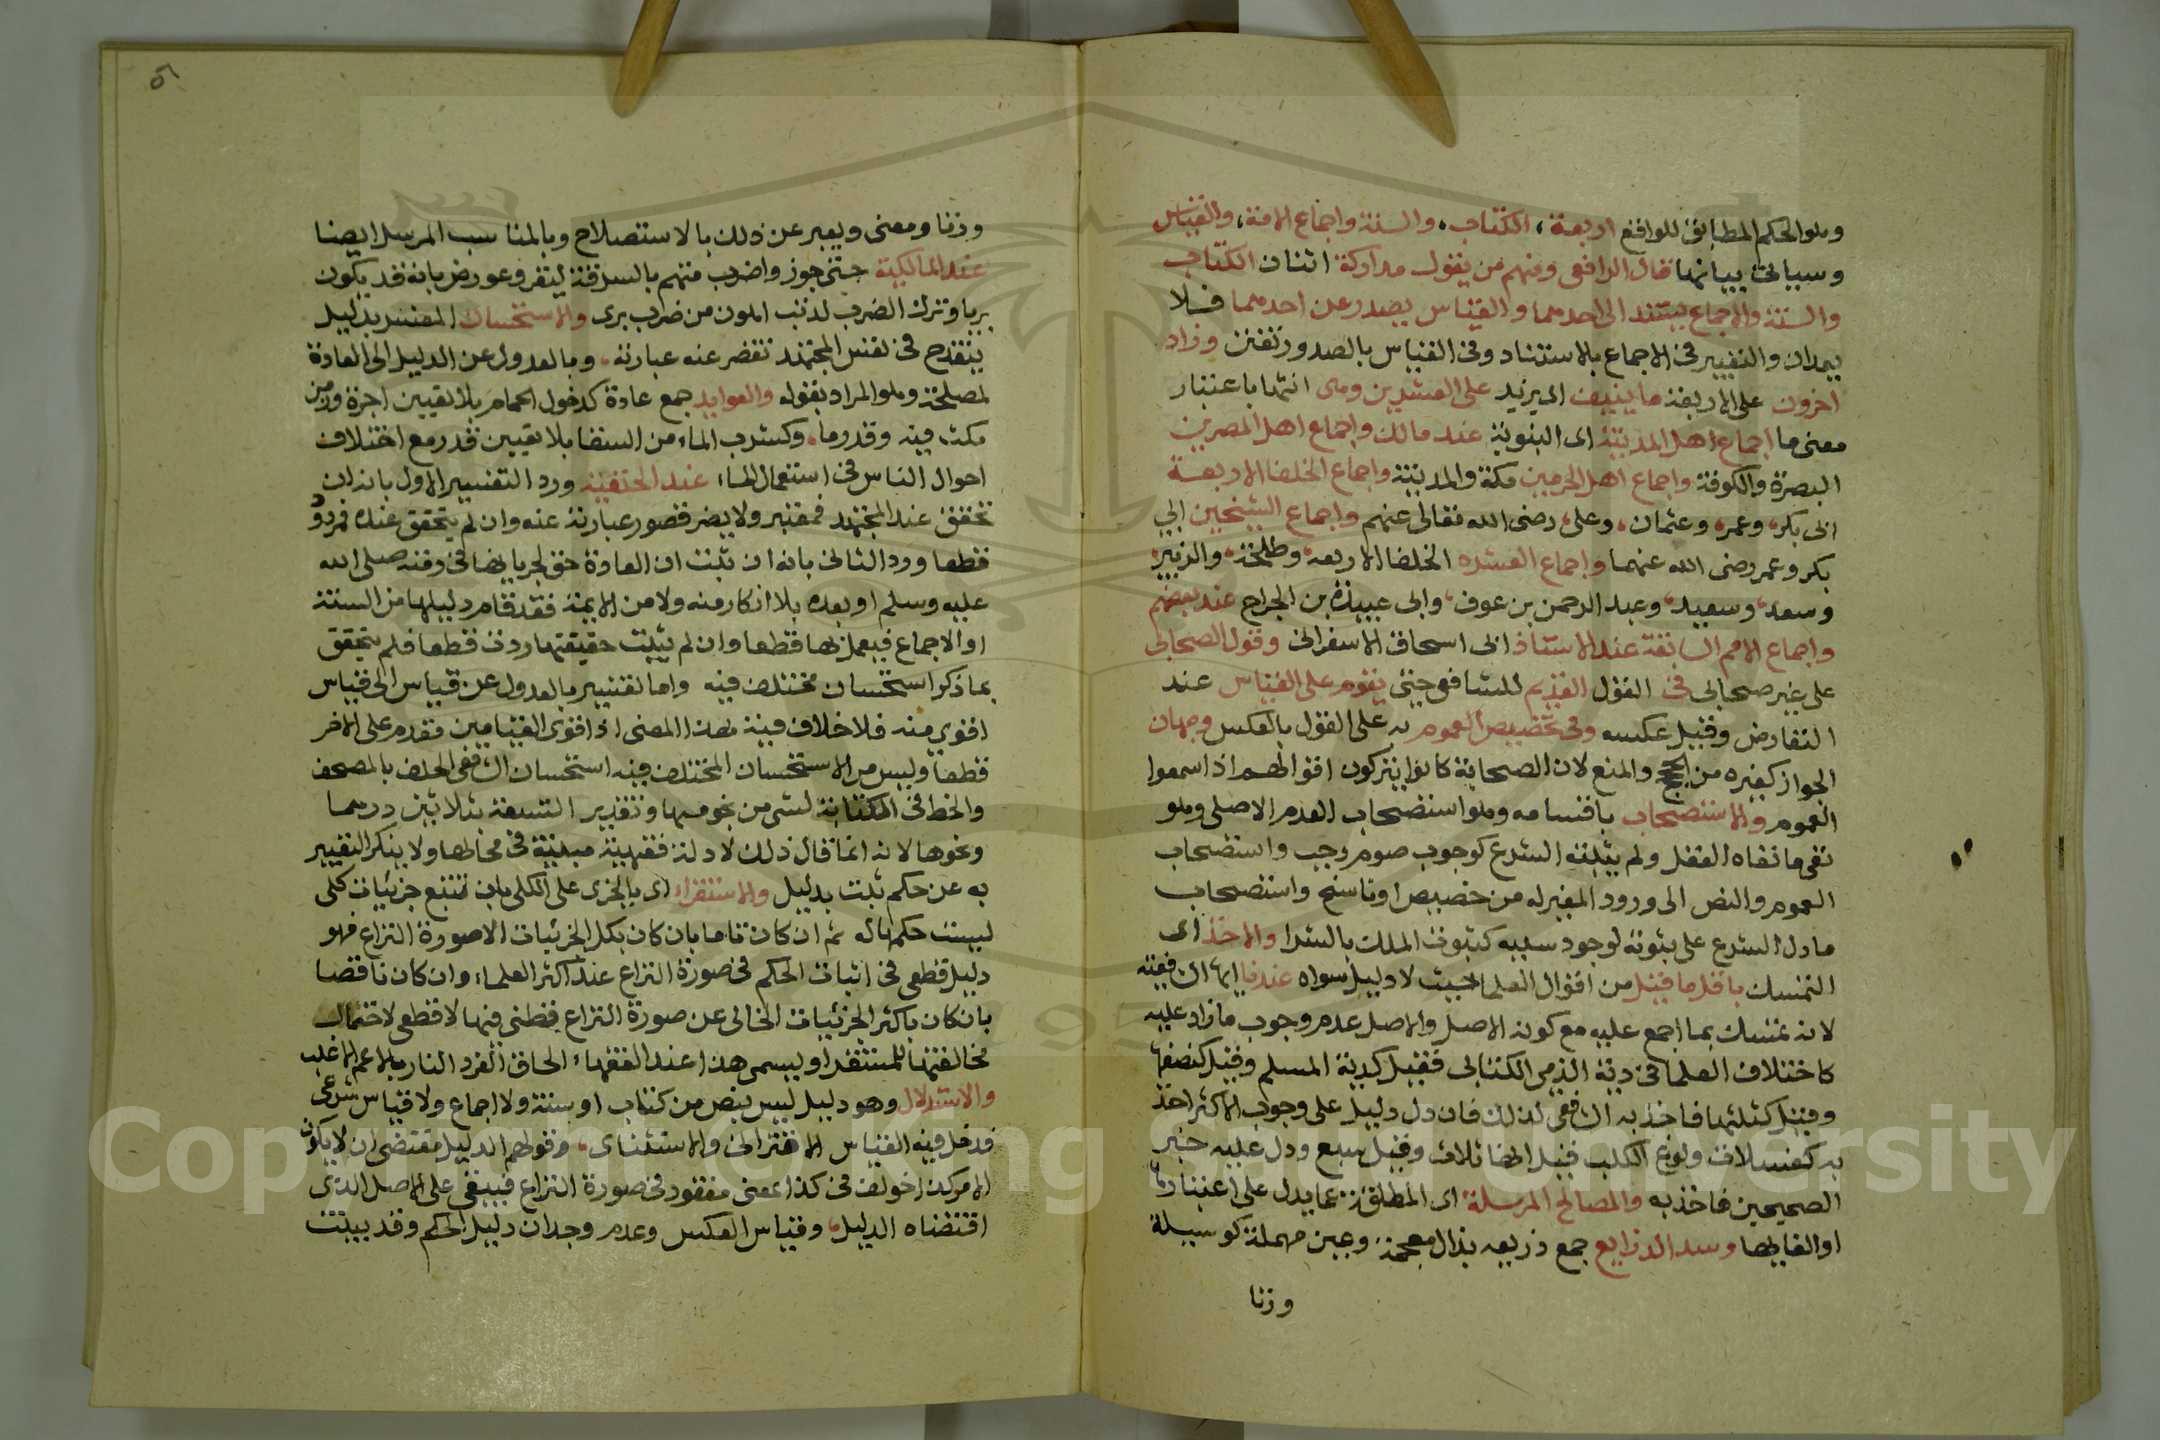 وهو الحكم المطابق للواقع اربعة، الكتاب، والسنة واجماع الامة، والقياس
وسياتي بيانها قال الرافعي ومنهم من يقول مداركة اثنان الكتاب
والسنة والاجماع يستند الى احدهما والقياس يصدر عن احدهما فلا
يعدان والتغيير في الاجماع بالاستناد وفي القياس بالصدور تفنن وزاد
اخرون على الاربعة ما ينيف اى يزيد على العشرين وهى انتها باعتبار
معنى ما اجماع اهل المدينة اى النبوية عند مالك واجماع اهل المصرين
البصرة والكوفة واجماع اهل الحرمين مكة والمدينة واجماع الخلفا الاربعة
ابى بكر، وعمر، وعثمان، وعلى، رضى الله تعالى عنهم واجماع الشيخين ابي
بكر وعمر رضى الله عنهما واجماع العشره الخلفا الاربعه، وطلحة، والزبير،
وسعد، وسعيد، وعبد الرحمن بن عوف، وابى عبيدة بن الجراح عند بعضهم
واجماع الامم السابقة عند الاستاذ ابى اسحاق الاسفرانى وقول الصحابى
على غير صحابى في القول القديم للشافعي حتى يقوم على القياس عند
التعارض وقيل عكسه وفي تخصيص العموم به على القول بالعكس وجهان
الجواز كغيره من الحجج والمنع لان الصحابة كانوا يتركون اقوالهم اذا سمعوا
العموم والاستصحاب باقسامه وهو استصحاب العدم الاصلى وهو
نفى ما نفاه العقل ولم يثبته الشرع كوجوب صوم رجب واستصحاب
العموم والنص الى ورود المغير له من خصيص او ناسخ واستصحاب
ما دل الشرع على ثبوته لوجود سببه كثبوت الملك بالشرا والاخذ اى
التمسك باقل ما قيل من اقوال العلما حيث لا دليل سواه عندنا ايها الشافعية
لانه تمسك بما اجمع عليه مع كونه الاصل والاصل عدم وجوب ما زاد عليه
كاختلاف العلما في دية الذمى الكتابى فقيل كدية المسلم وقيل كنصفها
وقيل كثلثها فاخذ به الشافعي لذلك فان دل دليل على وجوب الاكثر اخذ
به كغسلات ولوغ الكلب قيل انها ثلاث وقيل سبع ودل عليه خبر
الصحيحين فاخذ به والمصالح المرسلة اى المطلقة عما يدل على اعتبارها
او الغايها وسد الذرايع جمع ذريعه بذال معجمة وعين مهملة كوسيلة
وزنا
٥
وزنا ومعنى ويعبر عن ذلك بالاستصلاح وبالمناسب المرسل ايضا
عند المالكية حتى جوزوا ضرب متهم بالسرقة ليقر وعورض بانه قد يكون
بريا وترك الضرب لذنب اهون من ضرب برى والاستحسان المفسر بدليل
ينقدح في نفس المجتهد تقصر عنه عبارته، وبالعدول عن الدليل الى العادة
لمصلحة وهو المراد بقوله والعوايد جمع عادة كدخول الحمام بلا تعيين اجرة وزمن
مكث فيه وقدر ماء، وكشرب الماء من السقا بلا تعيين قدر مع اختلاف
احوال الناس في استعمال الماء عند الحنفية ورد التفسير الاول بانه ان
تحقق عند المجتهد فمعتبر ولا يضر قصور عبارته عنه وان لم يتحقق عنده فمردود
قطعا ورد الثانى بانه ان ثبت ان العادة حق لجريانها في زمنه صلى الله
عليه وسلم او بعده بلا انكار منه ولا من الايمة فقد قام دليلها من السنة
او الاجماع فيعمل بها قطعا وان لم يثبت حقيقتها ردت قطعا فلم يتحقق
بما ذكر استحسان مختلف فيه واما تفسيره بالعدول عن قياس الى قياس
اقوي منه فلا خلاف فيه بهذا المعنى اذ اقوى القياسين مقدم على الاخر
قطعا وليس من الاستحسان المختلف فيه استحسان الشافعي الحلف بالمصحف
والخط في الكتابة لشى من نجومها وتقدير المتعة بثلاثين درهما
ونحوها لانه انما قال ذلك لادلة فقهية مبينة في محالها ولا ينكر التغيير
به عن حكم ثبت بدليل والاستقراء اى بالجزى على الكلى بان تتبع جزئيات كلى
ليثبت حكمها له ثم ان كان تاما بان كان بكل الجزئيات الا صورة النزاع فهو
دليل قطعى في اثبات الحكم في صورة النزاع عند اكثر العلماء وان كان ناقصا
بان كان باكثر الجزئيات الخالى عن صورة النزاع فظنى فيها لا قطعى لاحتمال
مخالفتها للمستقرا ويسمى هذا عند الفقهاء الحاق الفرد النادر بالاعم الاغلب
والاستدلال وهو دليل ليس بنص من كتاب او سنة ولا اجماع ولا قياس شرعى
فدخل فيه القياس الاقترانى والاستثناى، وقولهم الدليل مقتضى ان لا يكون
الامر كذا خولف في كذا لمعنى مفقود في صورة النزاع فيبقى على الاصل الذى
اقتضاه الدليل، وقياس العكس وعدم وجدان دليل الحكم وقد بينت
Copyright © King Saud University